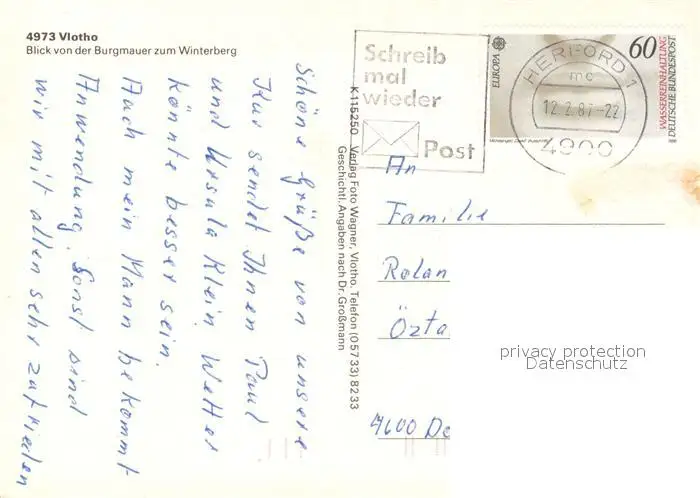 4973 Vlotho
Blick von der Burgmauer zum Winterberg
Schöne Grüße von unsere
Kur sendet Ihnen Paul
und Ursula Klein. Wetter
könnte besser sein.
Auch mein Mann bekommt
Anwendung. Sonst sind
wir mit allen sehr zufrieden
K115250 Verlag Foto Wagner, Vlotho, Telefon (05733) 8233
Geschichtl. Angaben nach Dr. Großmann
Schreib
mal
wieder
Post
EUROPA
60
WASSERREINHALTUNG
DEUTSCHE BUNDESPOST
HERFORD 1
mc
12.2.87-22
4900
An
Familie
Rolan
Özta
4600 Do
privacy protection
Datenschutz